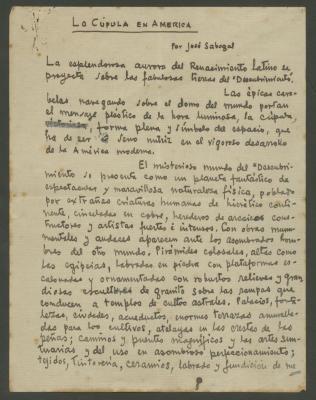 LA CÚPULA EN AMERICA
Por José Sabogal
La esplendorosa aurora del Renacimiento Latino se
proyecta sobre las fabulosas tierras del "Descubrimiento".
Las épicas cara-
belas navegando sobre el domo del mundo portan
el mensaje plástico de la hora luminosa, la cúpula,
forma plena y símbolo del espacio, que
ha de ser seno nutriz en el vigoroso desarrollo
de la América moderna.
El misterioso mundo del "Descubri-
miento" se presenta como un planeta fantástico de
espectacular y maravillosa naturaleza física, poblado
por extrañas criaturas humanas de hierático conti-
nente, cinceladas en cobre, herederos de arcaicos cons-
tructores y artistas fuertes é intensos. Con obras monu-
mentales y audaces aparecen ante los asombrados hom-
bres del otro mundo. Pirámides colosales, altas como
las egipcias, labradas en piedra con plataformas es-
calonadas y ornamentadas con robustos relieves y gran-
diosas esculturas de granito sobre las rampas que
conducen a templos de cultos astrales. Palacios, forta-
lezas, ciudades, acueductos, enormes terrazas amuralla-
das para los cultivos, atalayas en las crestas de las
peñas; caminos y puentes magníficos y las artes sun-
tuarias y del uso en asombroso perfeccionamiento;
tejidos, tintorería, ceramios, labrado y fundición de me